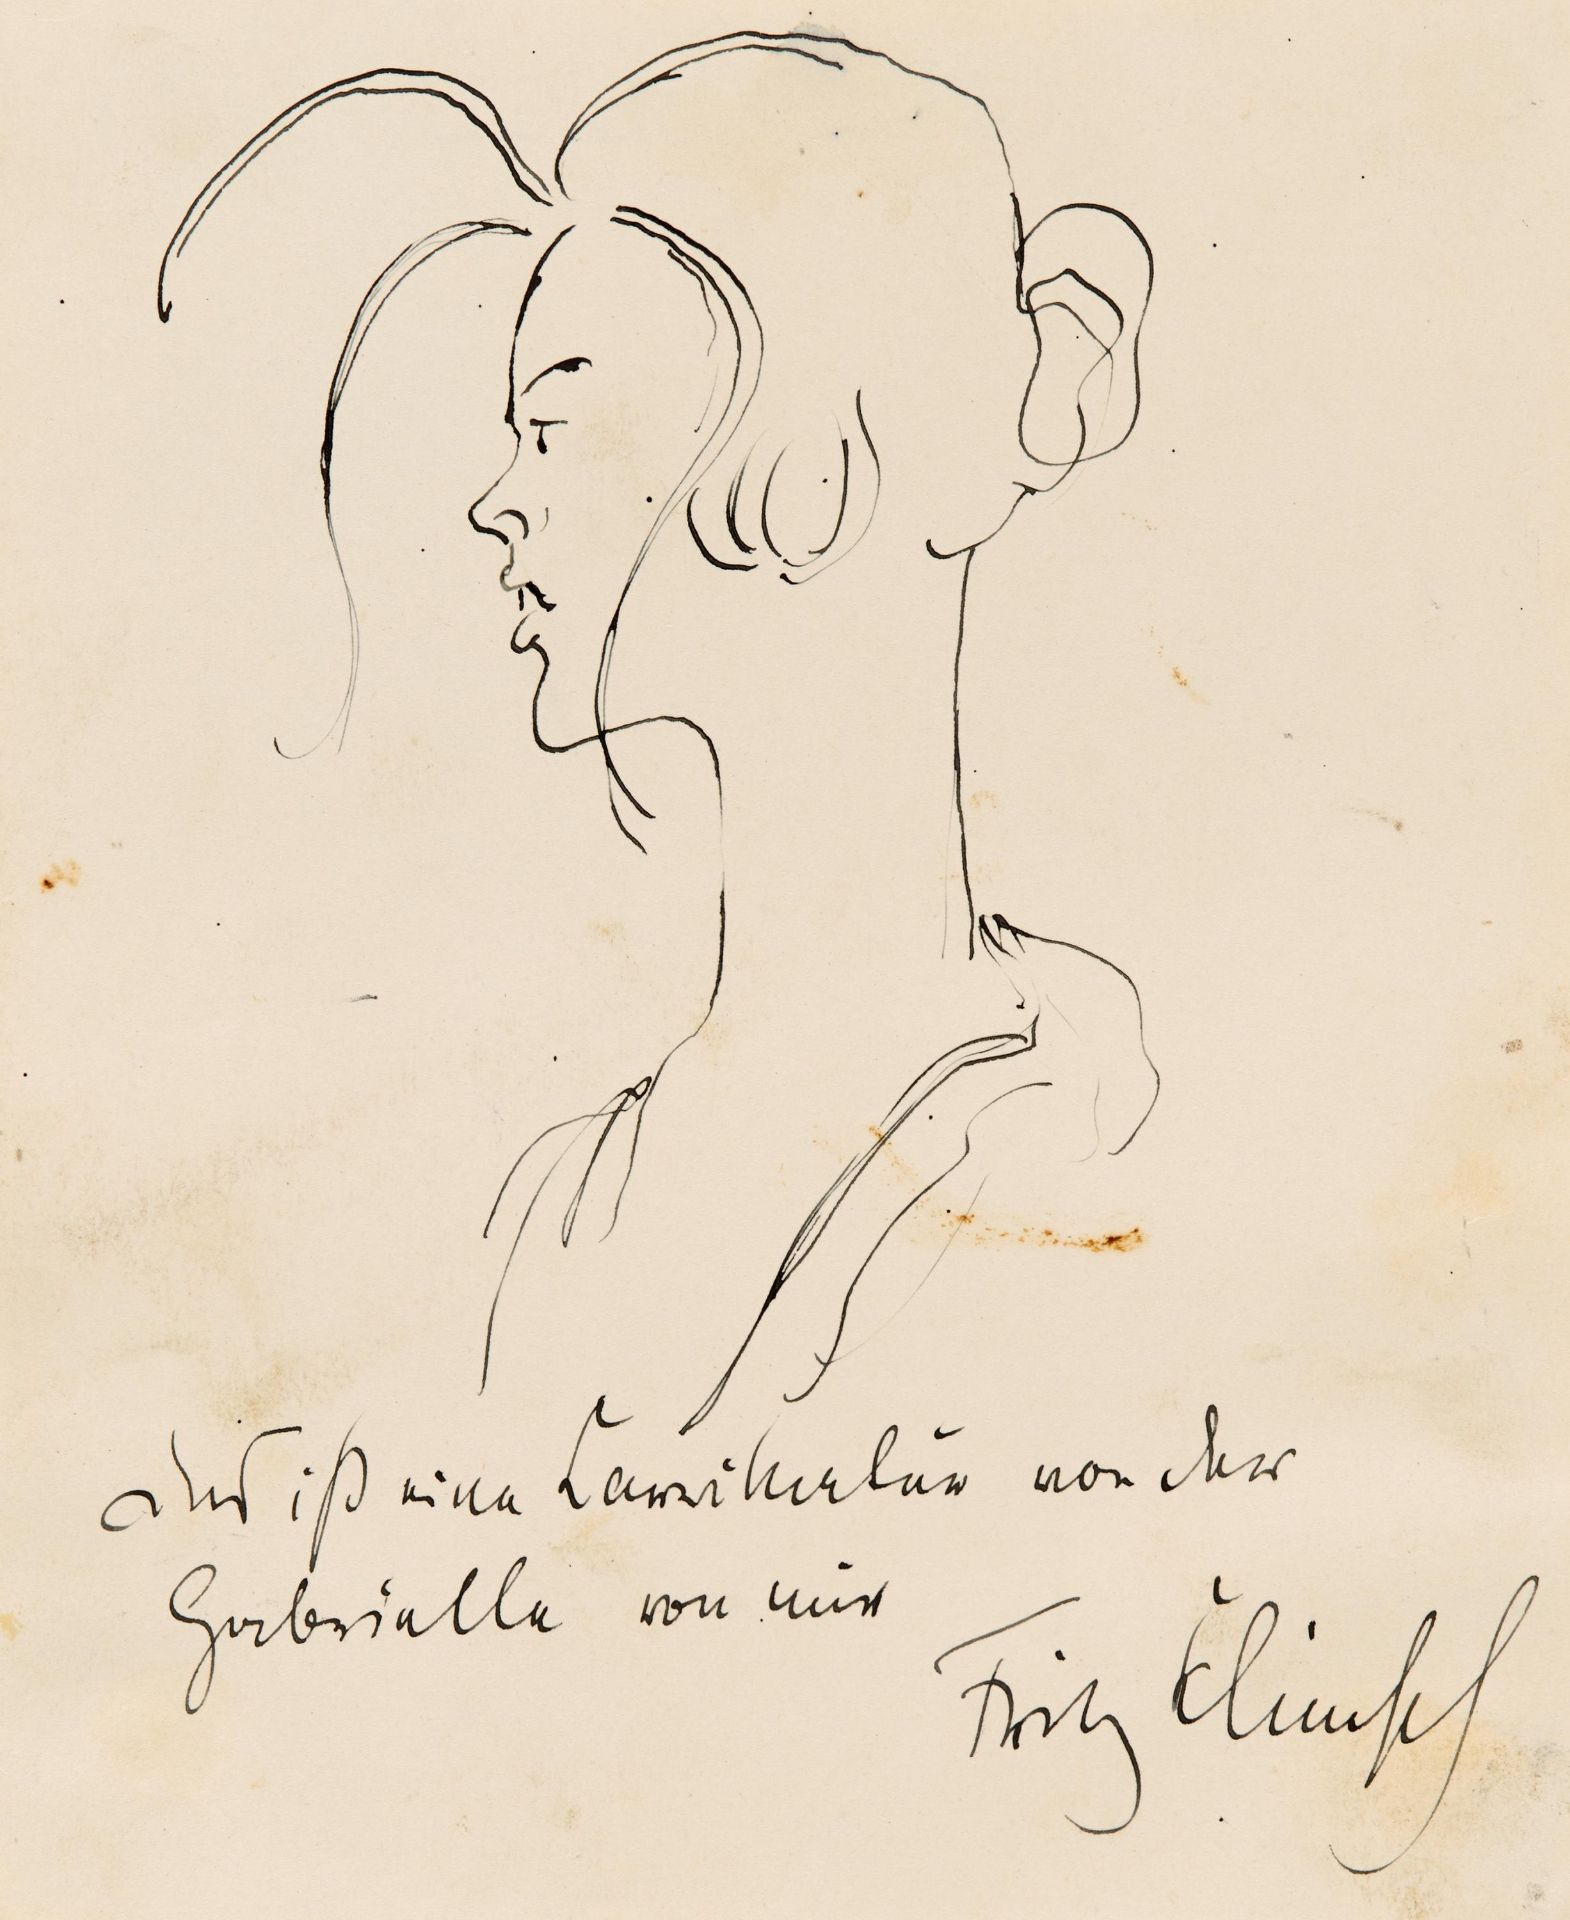 Das ist eine Carrikatur von der
Gabrielle von mir
Fritz Klimsch